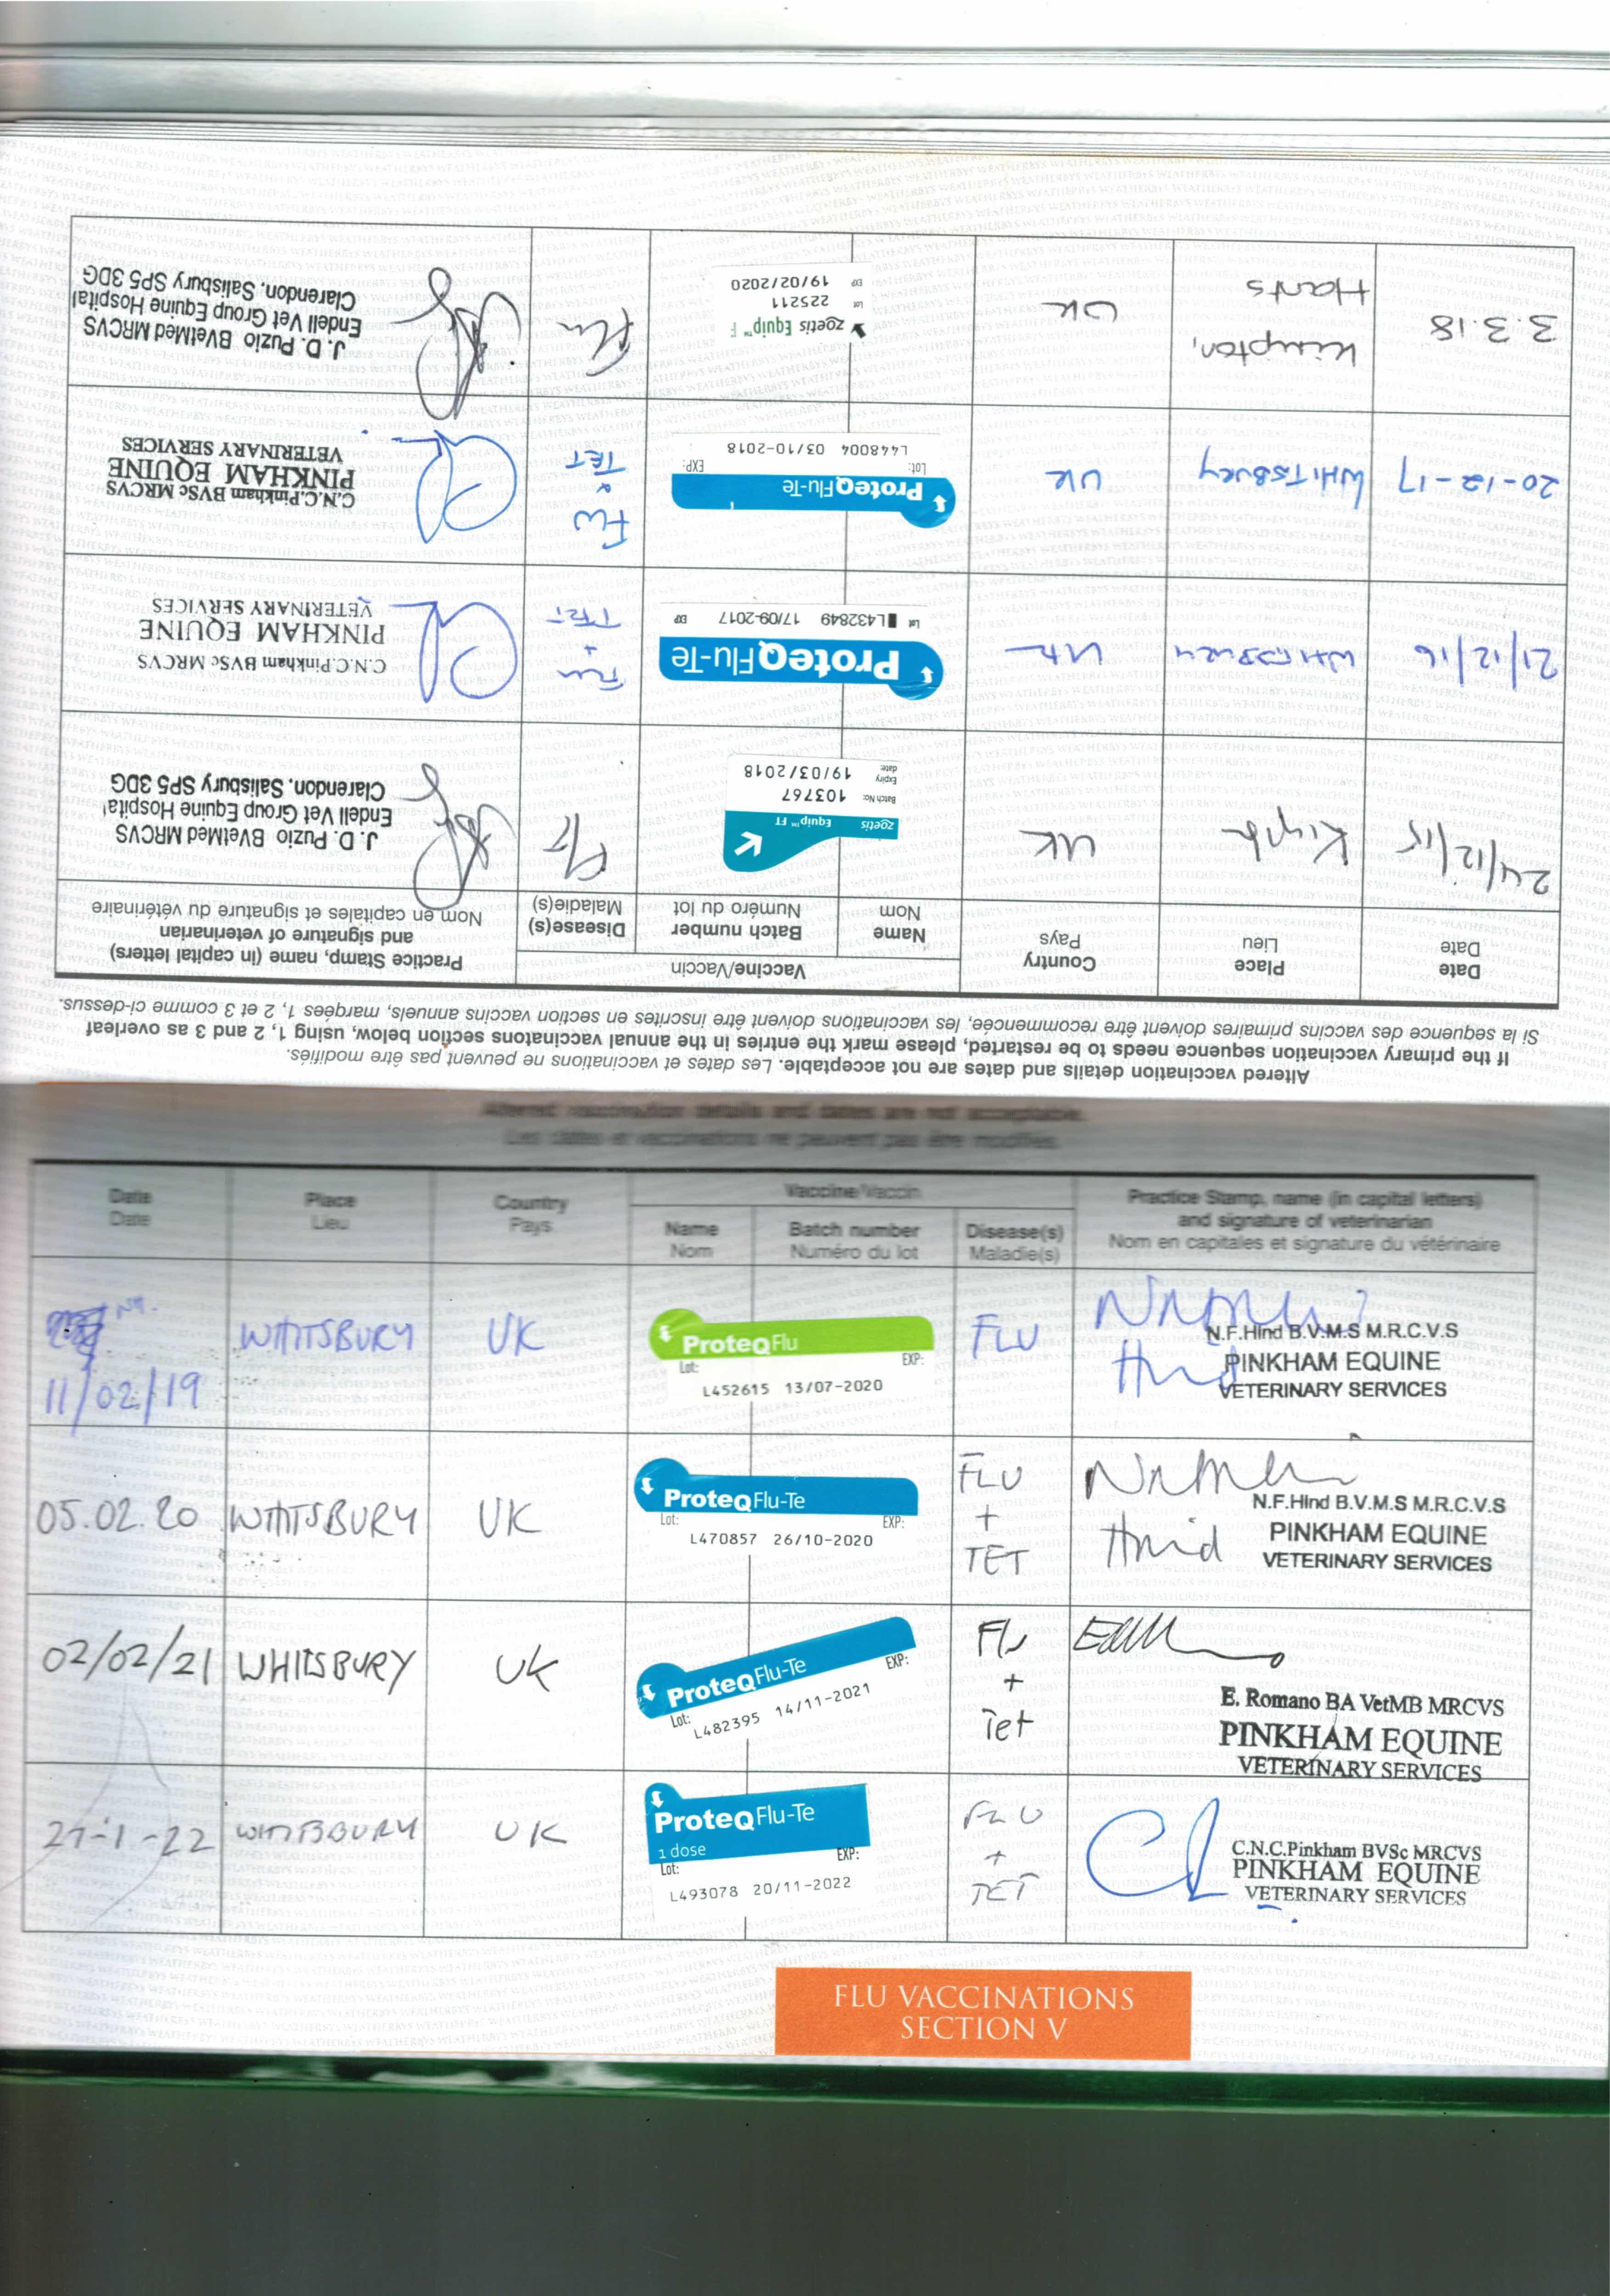 Altered vaccination details and dates are not acceptable. Les dates et vaccinations ne peuvent pas être modifiés.
If the primary vaccination sequence needs to be restarted, please mark the entries in the annual vaccinatons section below, using 1, 2 and 3 as overleaf
Si la séquence des vaccins primaires doivent être recommencée, les vaccinations doivent être inscrites en section vaccins annuels, marquées 1, 2 et 3 comme ci-dessus.
Date
Date
Place
Lieu
Country
Pays
Vaccine/Vaccin
Name
Nom
Batch number
Numéro du lot
Disease(s)
Maladie(s)
Practice Stamp, name (in capital letters)
and signature of veterinarian
Nom en capitales et signature du vétérinaire
24/12/15
UK
zoetis Equip™ FT
Batch No: 103767
Expiry date: 19/03/2018
F/T
J. D. Puzio BVetMed MRCVS
Endell Vet Group Equine Hospital
Clarendon. Salisbury SP5 3DG
21/12/16
WHITSBURY
UK
ProteqFlu-Te
Lot L432849 17/09-2017 EXP
Flu
+
TET
C.N.C.Pinkham BVSc MRCVS
PINKHAM EQUINE
VETERINARY SERVICES
20-12-17
WHITSBURY
UK
ProteqFlu-Te
Lot: EXP:
L448004 03/10-2018
FLU
&
TET
C.N.C.Pinkham BVSc MRCVS
PINKHAM EQUINE
VETERINARY SERVICES
3.3.18
Kimpton,
Hants
UK
zoetis Equip™ F
Lot 225211
EXP 19/02/2020
Flu
J. D. Puzio BVetMed MRCVS
Endell Vet Group Equine Hospital
Clarendon. Salisbury SP5 3DG
Altered vaccination details and dates are not acceptable.
Les dates et vaccinations ne peuvent pas être modifiés.
Date
Date
Place
Lieu
Country
Pays
Vaccine/Vaccin
Name
Nom
Batch number
Numéro du lot
Disease(s)
Maladie(s)
Practice Stamp, name (in capital letters)
and signature of veterinarian
Nom en capitales et signature du vétérinaire
NH.
11/02/19
WHITSBURY
UK
ProteqFlu
Lot: EXP:
L452615 13/07-2020
FLU
N.F.Hind B.V.M.S M.R.C.V.S
PINKHAM EQUINE
VETERINARY SERVICES
05.02.20
WHITSBURY
UK
ProteqFlu-Te
Lot: EXP:
L470857 26/10-2020
FLU
+
TET
N.F.Hind B.V.M.S M.R.C.V.S
PINKHAM EQUINE
VETERINARY SERVICES
02/02/21
WHITSBURY
UK
ProteqFlu-Te
Lot: EXP:
L482395 14/11-2021
Flu
+
Tet
E. Romano BA VetMB MRCVS
PINKHAM EQUINE
VETERINARY SERVICES
27-1-22
WHITSBURY
UK
ProteqFlu-Te
1 dose
Lot: EXP:
L493078 20/11-2022
FLU
+
TET
C.N.C.Pinkham BVSc MRCVS
PINKHAM EQUINE
VETERINARY SERVICES
FLU VACCINATIONS
SECTION V